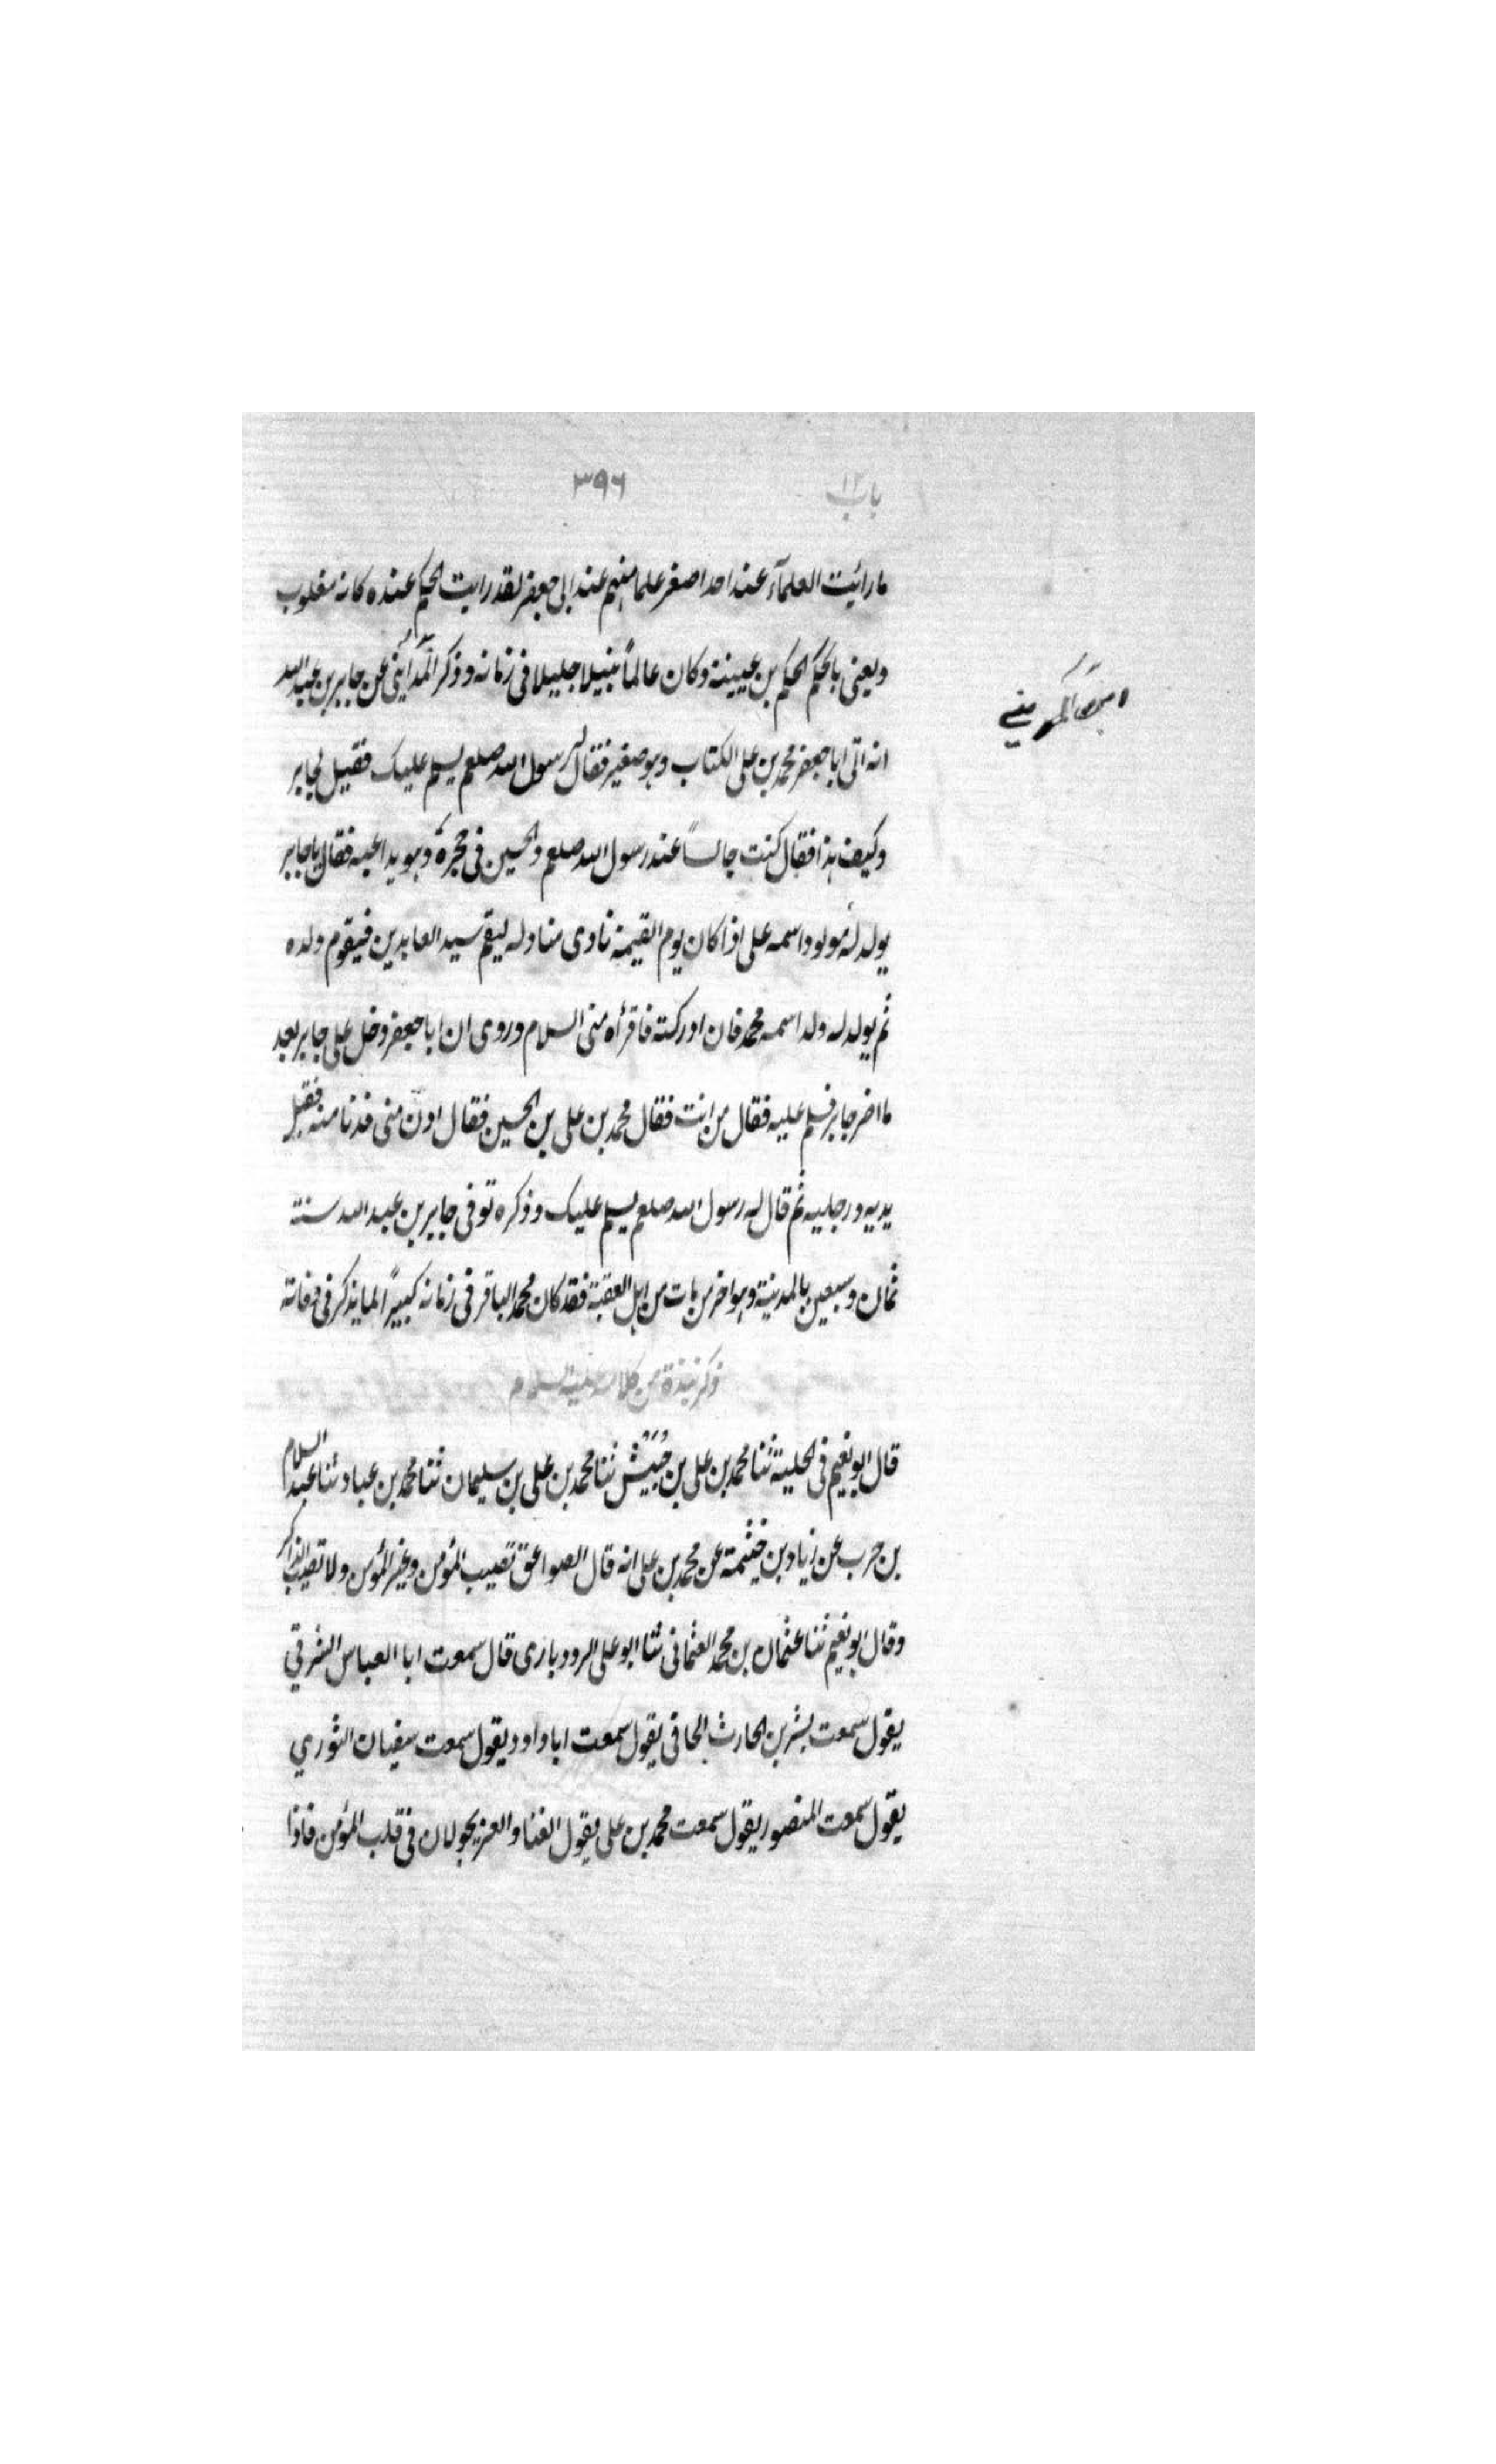 باب ١٢
٣٩٦
ما رائيت العلمآء عند احد اصغر علما منهم عند ابى جعفر لقد رايت الحكم عنده كانه مغلوب
ويعنى بالحكم الحكم بن عيينة وكان عالماً نبيلا جليلا فى زمانه وذكر المدائنى عن جابر بن عبد الله
انه اتى ابا جعفر محمد بن على الكتاب وهو صغير فقال له رسول الله صلعم يسلم عليك فقيل لجابر
وكيف هذا فقال كنت جالساً عند رسول الله صلعم والحسين فى حجره وهو يداعبه فقال يا جابر
يولد له مولود اسمه على اذا كان يوم القيمة نادى مناد له ليقم سيد العابدين فيقوم ولده
ثم يولد له ولد اسمه محمد فان ادركته فاقرأه منى السلام وروى ان ابا جعفر دخل على جابر بعد
ما اضر جابر فسلم عليه فقال من انت فقال محمد بن على بن الحسين فقال ادن منى فدنا منه فقبل
يديه ورجليه ثم قال له رسول الله صلعم يسلم عليك وذكره توفى جابر بن عبد الله سنة
ثمان وسبعين بالمدينة وهو اخر من مات من اهل العقبة فقد كان محمد الباقر فى زمانه كبيراً لما يذكر فى وفاته
ذكر نبذة من كلامه عليه السلام
قال ابو نعيم فى الحلية ثنا محمد بن على بن حُبَيْش ثنا محمد بن على بن سليمان ثنا محمد بن عباد ثنا عبد السلام
بن حرب عن زياد بن خيثمة عن محمد بن على انه قال الصواعق تصيب المؤمن وغير المؤمن ولا تصيب الذاكر
وقال ابو نعيم ثنا عثمان بن محمد العثمانى ثنا ابو على الرودبارى قال سمعت ابا العباس الشرقي
يقول سمعت بشر بن الحارث الحافى يقول سمعت ابا داود يقول سمعت سفيان الثوري
يقول سمعت المنصور يقول سمعت محمد بن على يقول الغنا والعز يجولان فى قلب المؤمن فاذا